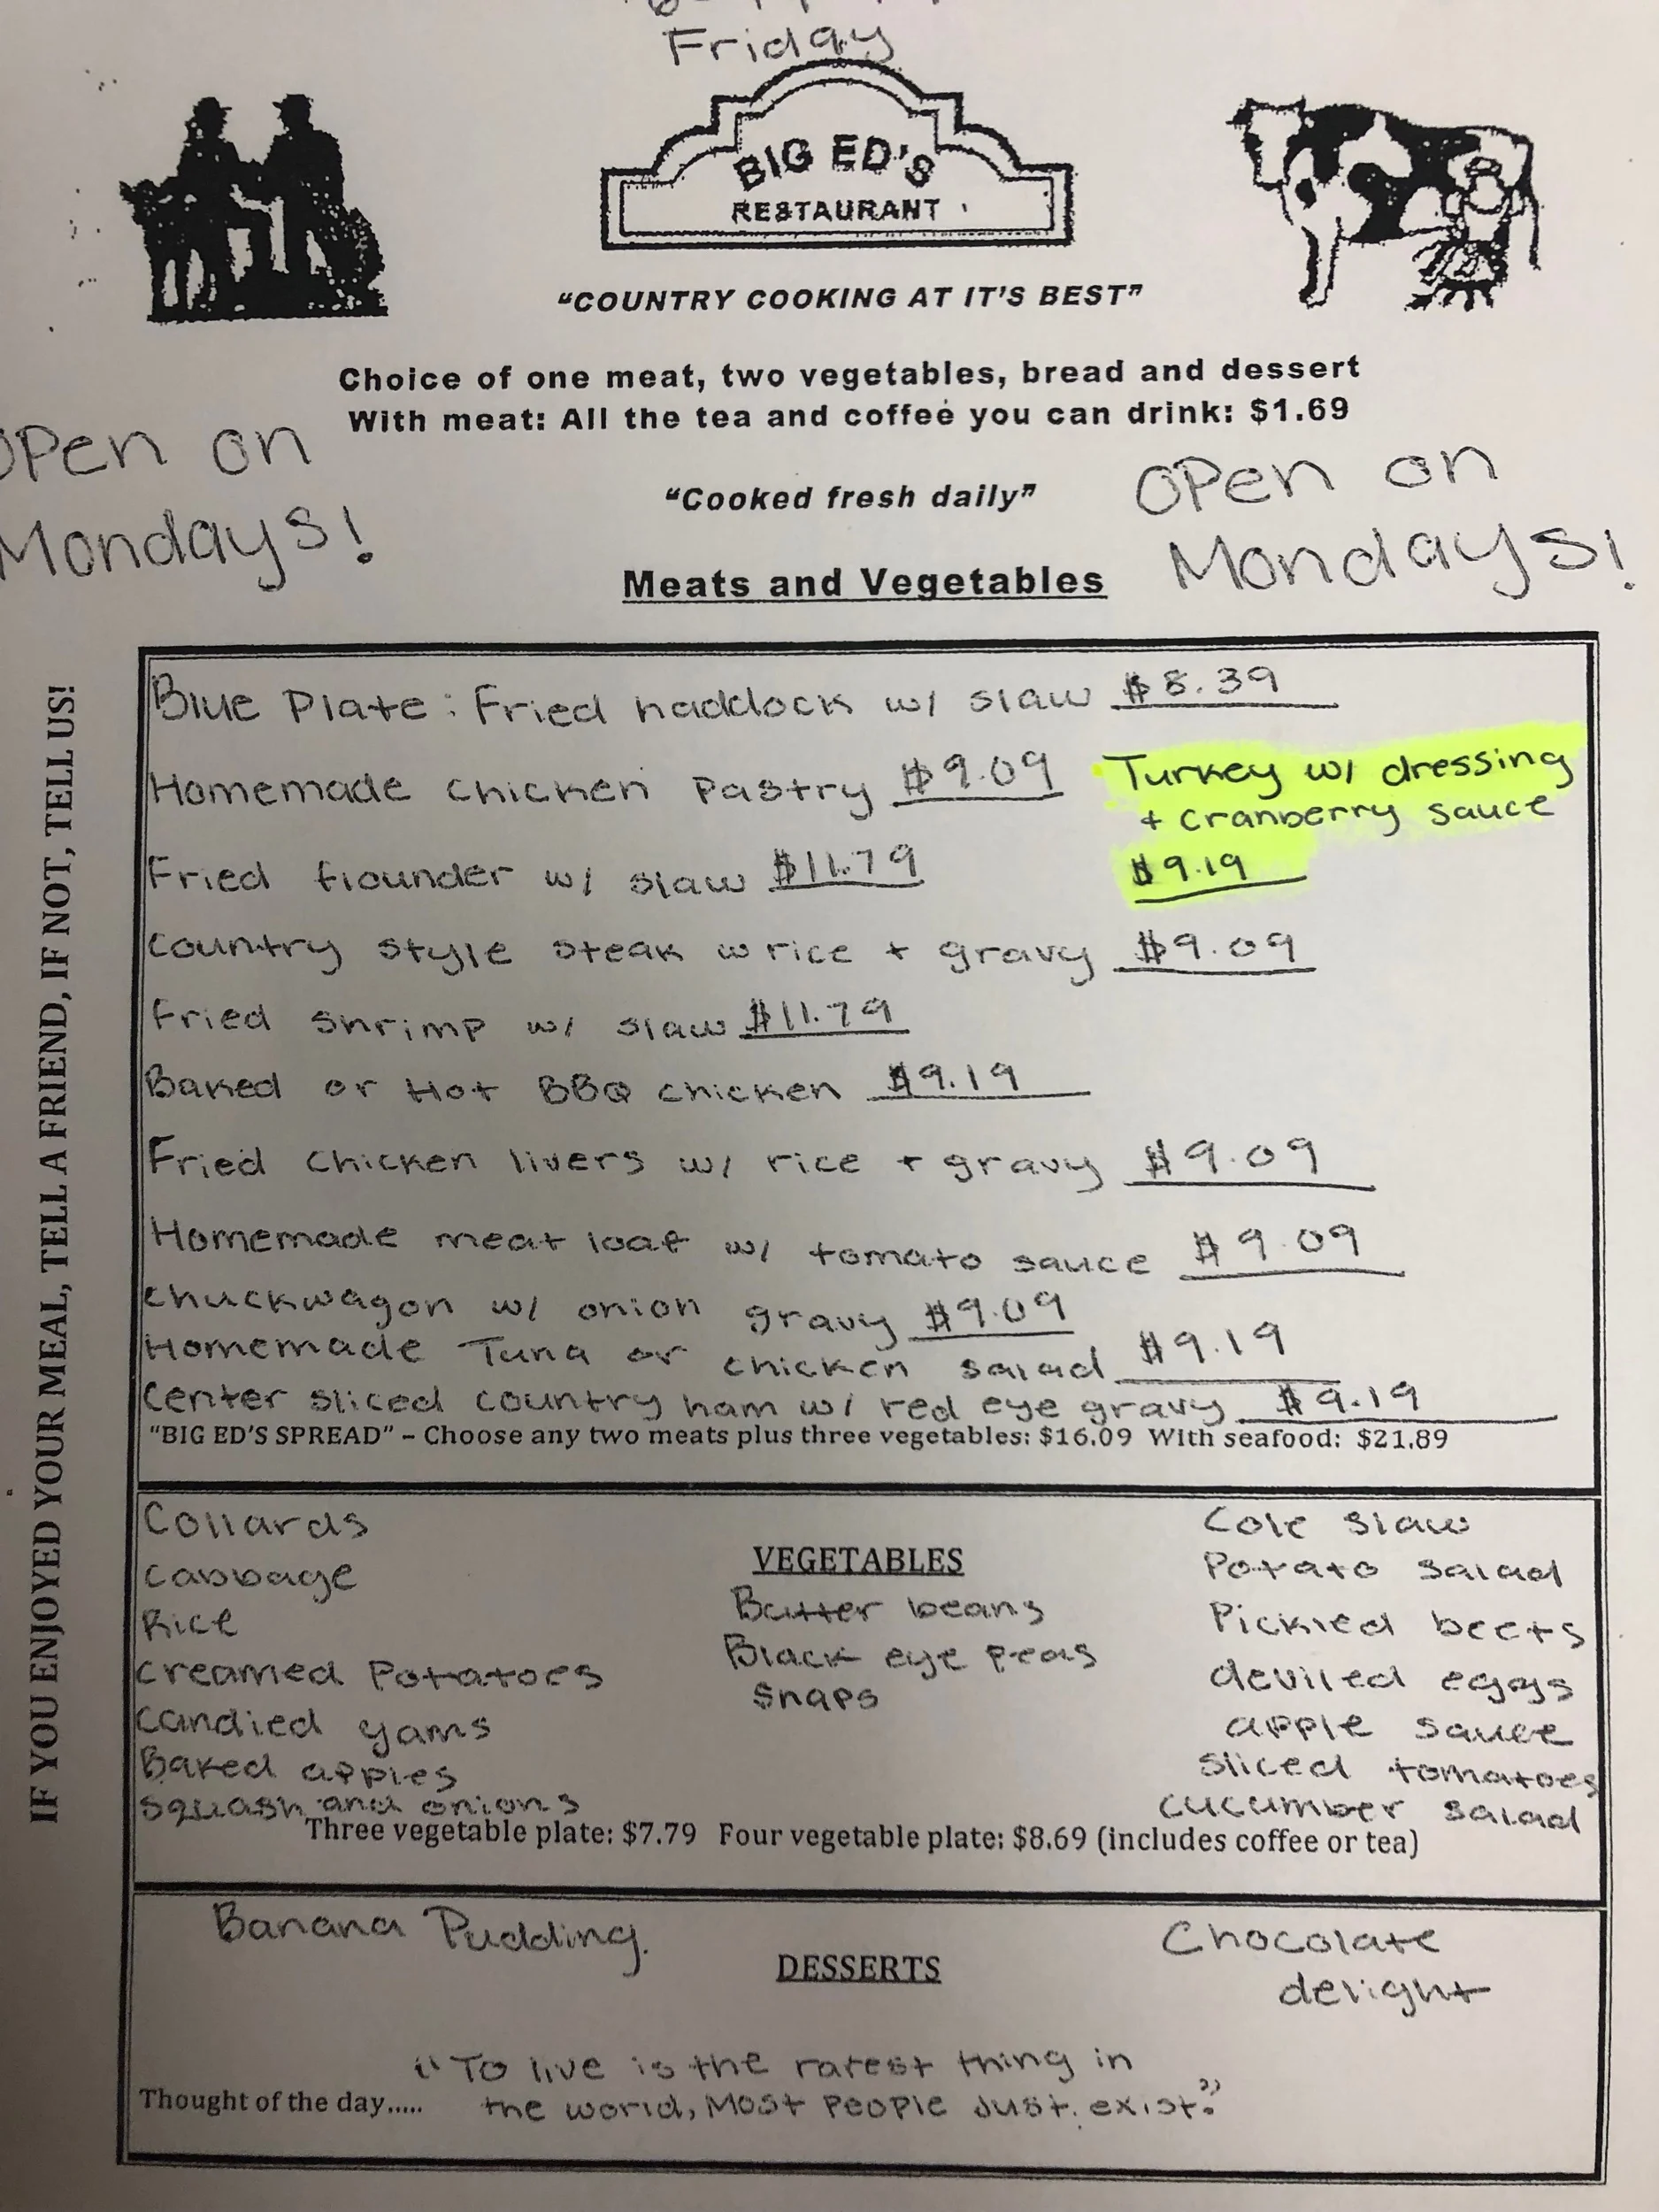 Friday
BIG ED'S
RESTAURANT
"COUNTRY COOKING AT IT'S BEST"
Choice of one meat, two vegetables, bread and dessert
With meat: All the tea and coffee you can drink: $1.69
Open on
Mondays!
"Cooked fresh daily"
Open on
Mondays!
Meats and Vegetables
IF YOU ENJOYED YOUR MEAL, TELL A FRIEND, IF NOT, TELL US!
Blue Plate: Fried haddock w/ slaw $8.39
Homemade chicken Pastry $9.09
Turkey w/ dressing
+ cranberry sauce
$9.19
Fried flounder w/ slaw $11.79
country style steak w rice + gravy $9.09
Fried shrimp w/ slaw $11.79
Baked or Hot BBQ chicken $9.19
Fried chicken livers w/ rice + gravy $9.09
Homemade meat loaf w/ tomato sauce $9.09
chuckwagon w/ onion gravy $9.09
Homemade Tuna or chicken salad $9.19
center sliced country ham w/ red eye gravy $9.19
"BIG ED'S SPREAD" – Choose any two meats plus three vegetables: $16.09 With seafood: $21.89
VEGETABLES
Collards
cabbage
Rice
creamed Potatoes
candied yams
Baked apples
squash and onions
Butter beans
Black eye peas
Snaps
Cole slaw
Potato salad
Pickled beets
deviled eggs
apple sauce
sliced tomatoes
cucumber salad
Three vegetable plate: $7.79 Four vegetable plate: $8.69 (includes coffee or tea)
DESSERTS
Banana Pudding.
Chocolate
delight
Thought of the day.....
"To live is the rarest thing in
the world, Most People Just exist."